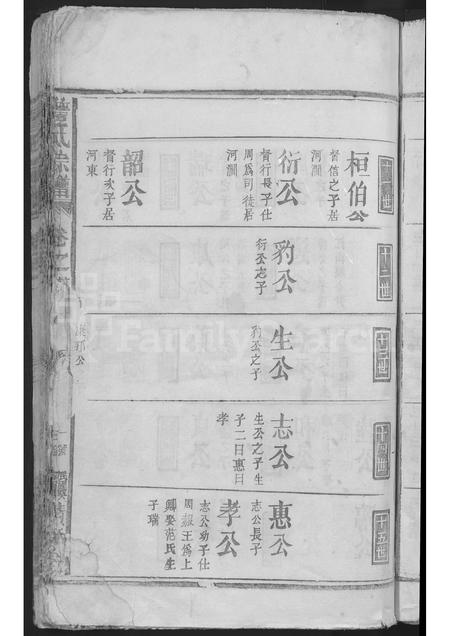 十一世
桓伯公
督信之子居
河澗
衍公
督行長子仕
周爲司徒居
河澗
韶公
督行次子居
河東
十二世
豹公
衍公之子
十三世
生公
豹公之子
十四世
志公
生公之子生
子二曰惠曰
孝
十五世
惠公
志公長子
孝公
志公幼子仕
周赧王爲上
卿娶范氏生
子瑞
氏宗譜
卷之
FamilySearch